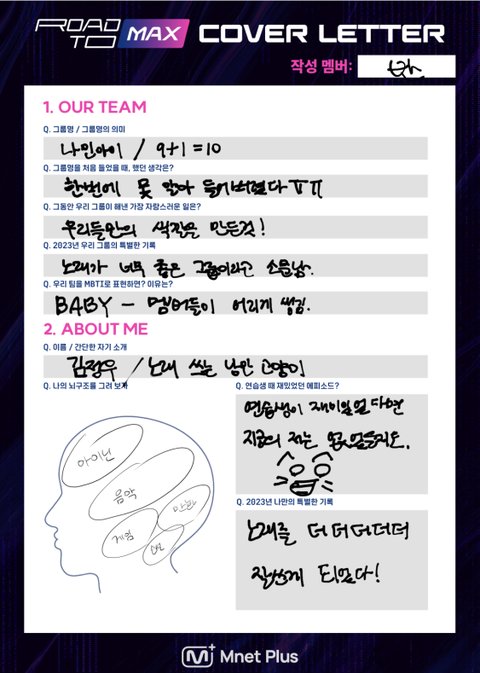 ROAD TO MAX COVER LETTER
작성 멤버:
1. OUR TEAM
Q. 그룹명 / 그룹명의 의미
나인아이 / 9+1=10
Q. 그룹명을 처음 들었을 때, 했던 생각은?
한번에 못 알아 들어버렸다ㅠㅠ
Q. 그동안 우리 그룹이 해낸 가장 자랑스러운 일은?
우리들만의 색깔을 만든것!
Q. 2023년 우리 그룹의 특별한 기록
노래가 너무 좋은 그룹이라고 소문남.
Q. 우리 팀을 MBTI로 표현하면? 이유는?
BABY - 멤버들이 어리게 생김.
2. ABOUT ME
Q. 이름 / 간단한 자기 소개
김정우 / 노래 쓰는 낭만 고양이
Q. 나의 뇌구조를 그려 보자
아이닌
음악
만화
게임
Q. 연습생 때 재밌었던 에피소드?
연습생이 재미있었다면
지금의 저는 못있을지도.
Q. 2023년 나만의 특별한 기록
노래를 더더더더더
잘쓰게 되었다!
Mnet Plus